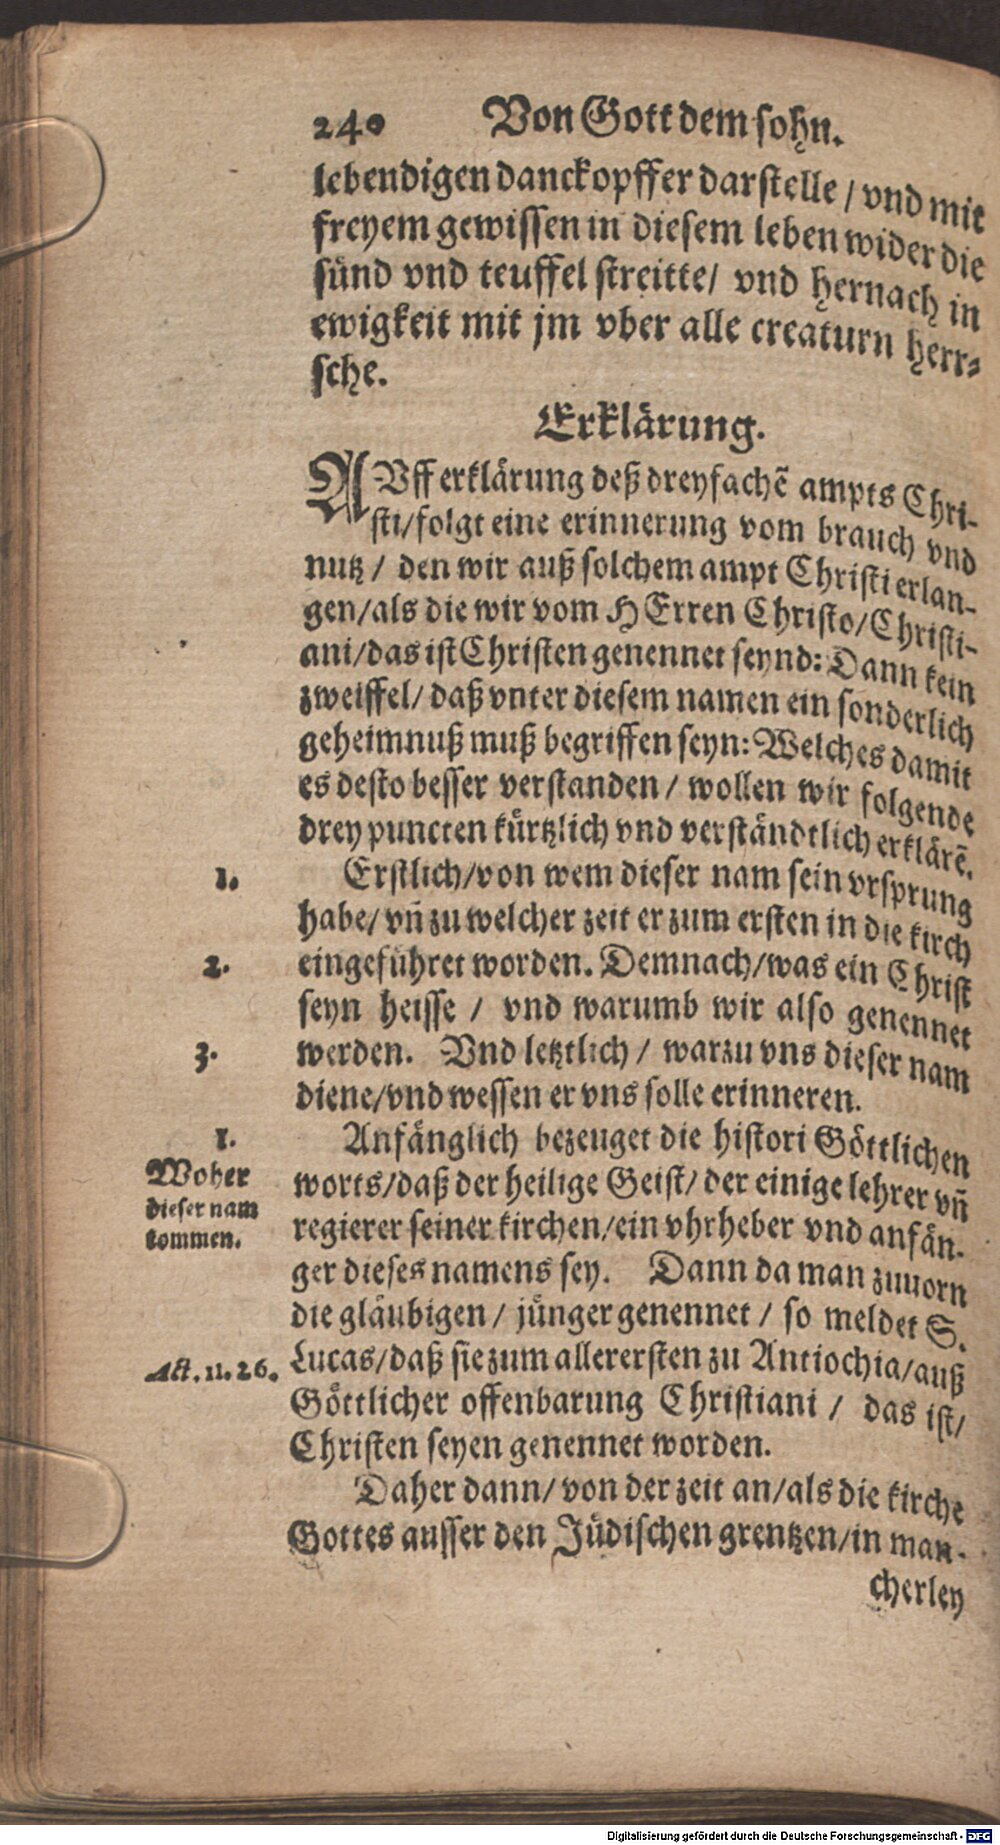 240 Von Gott dem sohn.
lebendigen danckopffer darstelle / vnd mit
freyem gewissen in diesem leben wider die
sünd vnd teuffel streitte / vnd hernach in
ewigkeit mit jm vber alle creaturn herr⸗
sche.
Erklärung.
AVff erklärung deß dreyfachē ampts Chri-
sti / folgt eine erinnerung vom brauch vnd
nutz / den wir auß solchem ampt Christi erlan-
gen / als die wir vom HErren Christo / Christi-
ani / das ist Christen genennet seynd: Dann kein
zweiffel / daß vnter diesem namen ein sonderlich
geheimnuß muß begriffen seyn: Welches damit
es desto besser verstanden / wollen wir folgende
drey puncten kürtzlich vnd verständtlich erklärē.
1. Erstlich / von wem dieser nam sein vrsprung
habe / vñ zu welcher zeit er zum ersten in die kirch
2. eingeführet worden. Demnach / was ein Christ
seyn heisse / vnd warumb wir also genennet
3. werden. Vnd letztlich / warzu vns dieser nam
diene / vnd wessen er vns solle erinneren.
1. Anfänglich bezeuget die histori Göttlichen
Woher
dieser nam
kommen.
worts / daß der heilige Geist / der einige lehrer vñ
regierer seiner kirchen / ein vhrheber vnd anfän-
ger dieses namens sey. Dann da man zuuorn
die gläubigen / jünger genennet / so meldet S.
Act. 11. 26. Lucas / daß sie zum allerersten zu Antiochia / auß
Göttlicher offenbarung Christiani / das ist /
Christen seyen genennet worden.
Daher dann / von der zeit an / als die kirche
Gottes ausser den Jüdischen grentzen / in man-
cherley
Digitalisierung gefördert durch die Deutsche Forschungsgemeinschaft - DFG